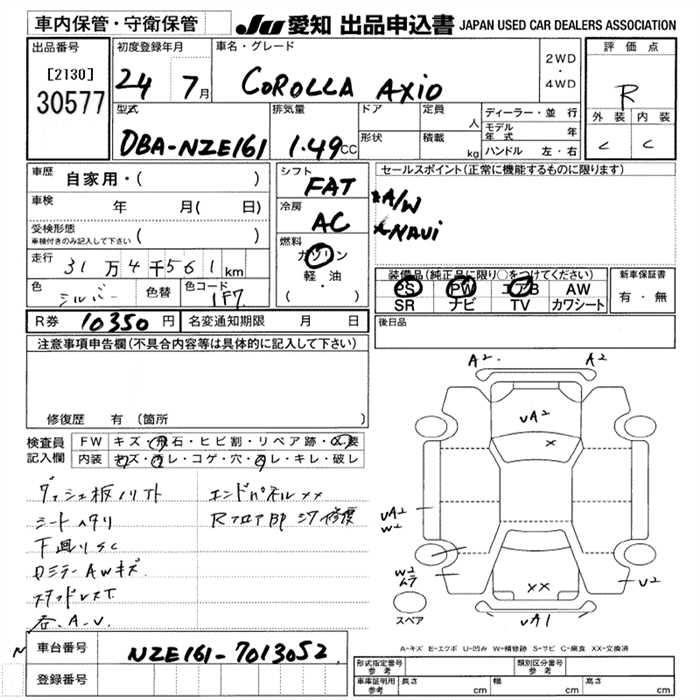 車内保管・守衛保管
JU 愛知 出品申込書 JAPAN USED CAR DEALERS ASSOCIATION
出品番号
[2130]
30577
初度登録年月
24 7月
車名・グレード
COROLLA AXIO
2WD
・
4WD
評価点
R
外装 内装
C C
型式
DBA-NZE161
排気量
1.49CC
ドア
形状
定員
人
積載
kg
ディーラー・並行
モデル年式 年
ハンドル 左・右
車歴
自家用・( )
車検 年 月( 日)
受検形態
車検付きのみ記入して下さい ( )
走行 31万4千561km
色 シルバー 色替 色コード 1F7
シフト
FAT
冷房
AC
燃料
ガソリン
軽・油
( ・ )
セールスポイント(正常に機能するものに限ります)
A/W
NAVi
装備品(純正品に限り○をつけてください)
PS PW エアB AW
SR ナビ TV カワシート
新車保証書
有・無
R券 10350円 名変通知期限 月 日
後日品
注意事項申告欄(不具合内容等は具体的に記入して下さい)
修復歴 有(箇所 )
検査員
記入欄
FW キズ・飛石・ヒビ割・リペア跡・要
内装 キズ・ヨレ・コゲ・穴・キレ・破レ
エンドパネルXX
シートヘタリ
下廻りSC
AWキズ
A2 A2
UA2
X
UA2
W2
W2
U2
XX
UA1
スペア
A-キズ E-エクボ U-凹み W-補修跡 S-サビ C-腐食 XX-交換済
N
車台番号 NZE161-7013052
登録番号
形式指定番号
参考
類別区分番号
参考
車庫証明用
参考
長さ cm 幅 cm 高さ cm